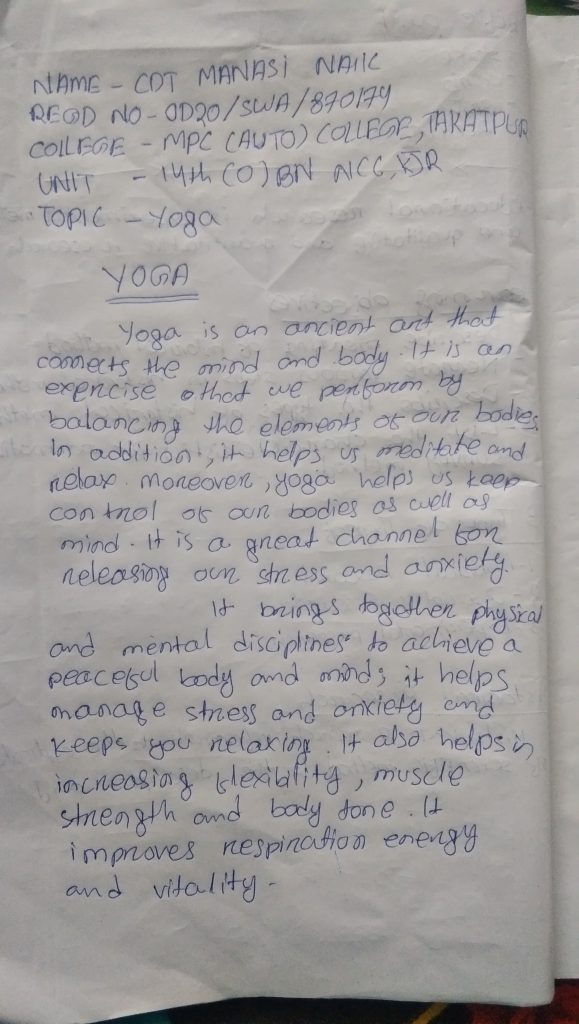 NAME - CDT MANASI NAIK
REGD NO - OD20/SWA/870174
COLLEGE - MPC (AUTO) COLLEGE, TAKATPUR
UNIT - 14th (O) BN NCC, KJR
TOPIC - Yoga
YOGA
Yoga is an ancient art that
connects the mind and body. It is an
exercise that we perform by
balancing the elements of our bodies.
In addition, it helps us meditate and
relax. Moreover, yoga helps us keep
control of our bodies as well as
mind. It is a great channel for
releasing our stress and anxiety.
It brings together physical
and mental disciplines to achieve a
peaceful body and mind; it helps
manage stress and anxiety and
keeps you relaxing. It also helps in
increasing flexibility, muscle
strength and body tone. It
improves respiration energy
and vitality.